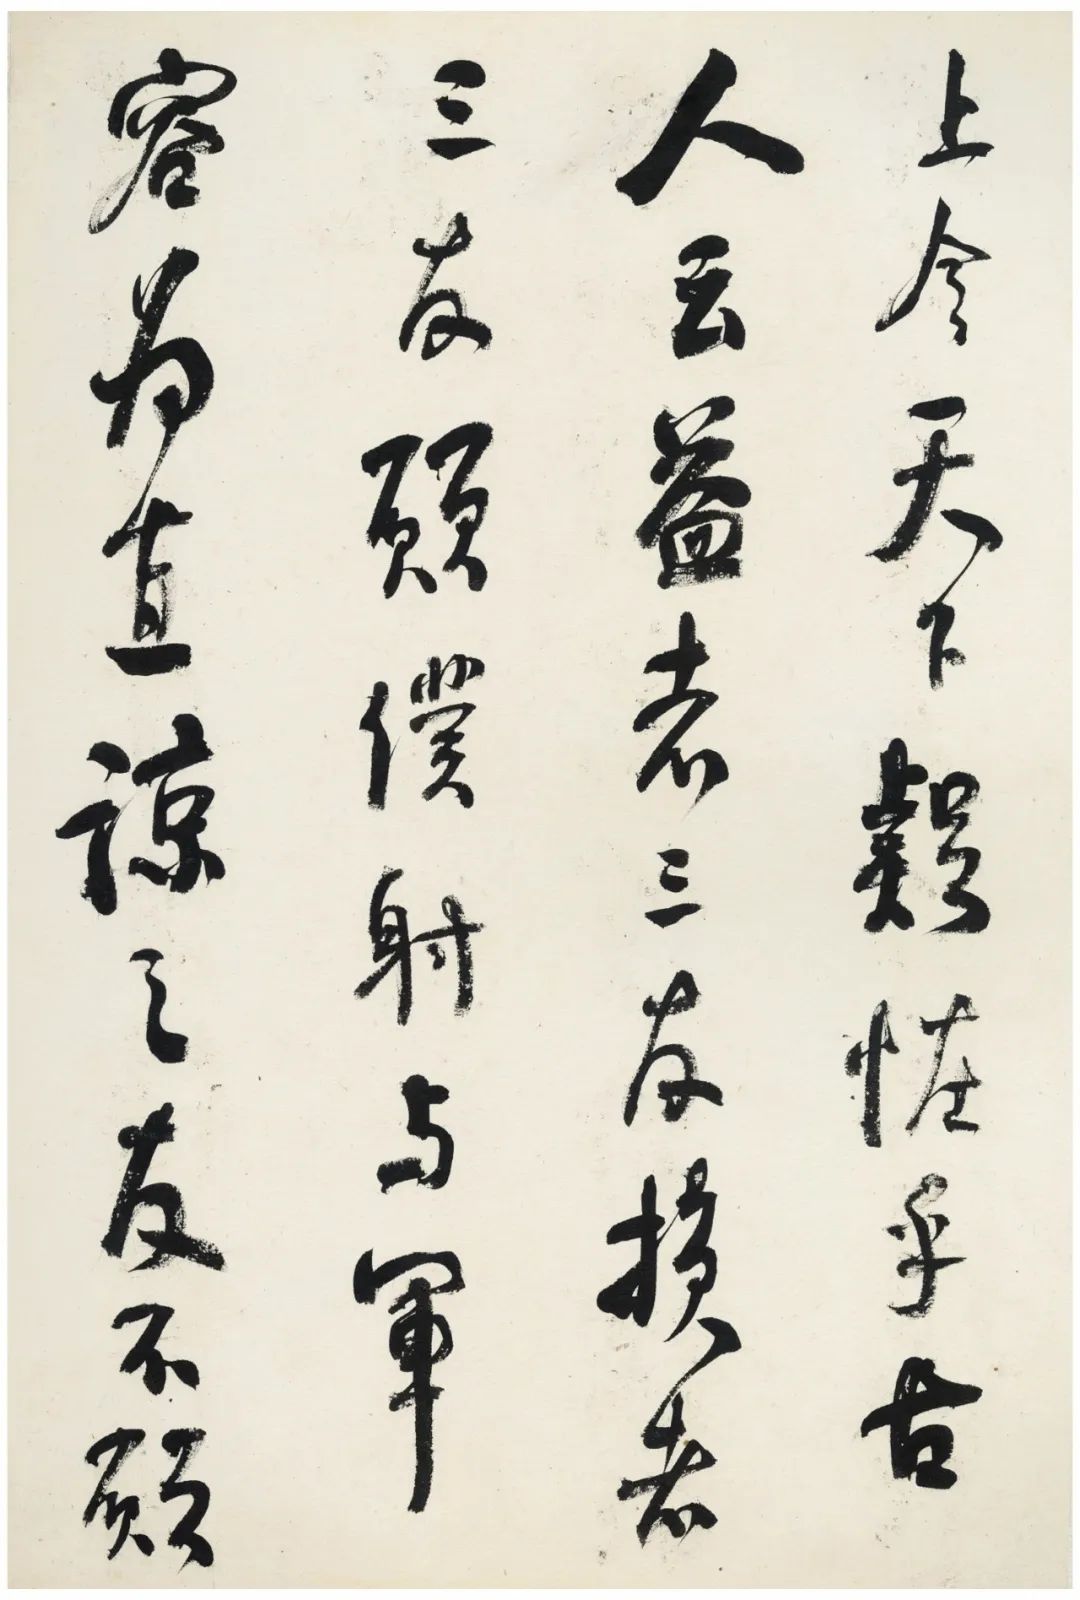 上令天下疑恠乎古
人云益者三友損者
三友願僕射与軍
容為直諒之友不願